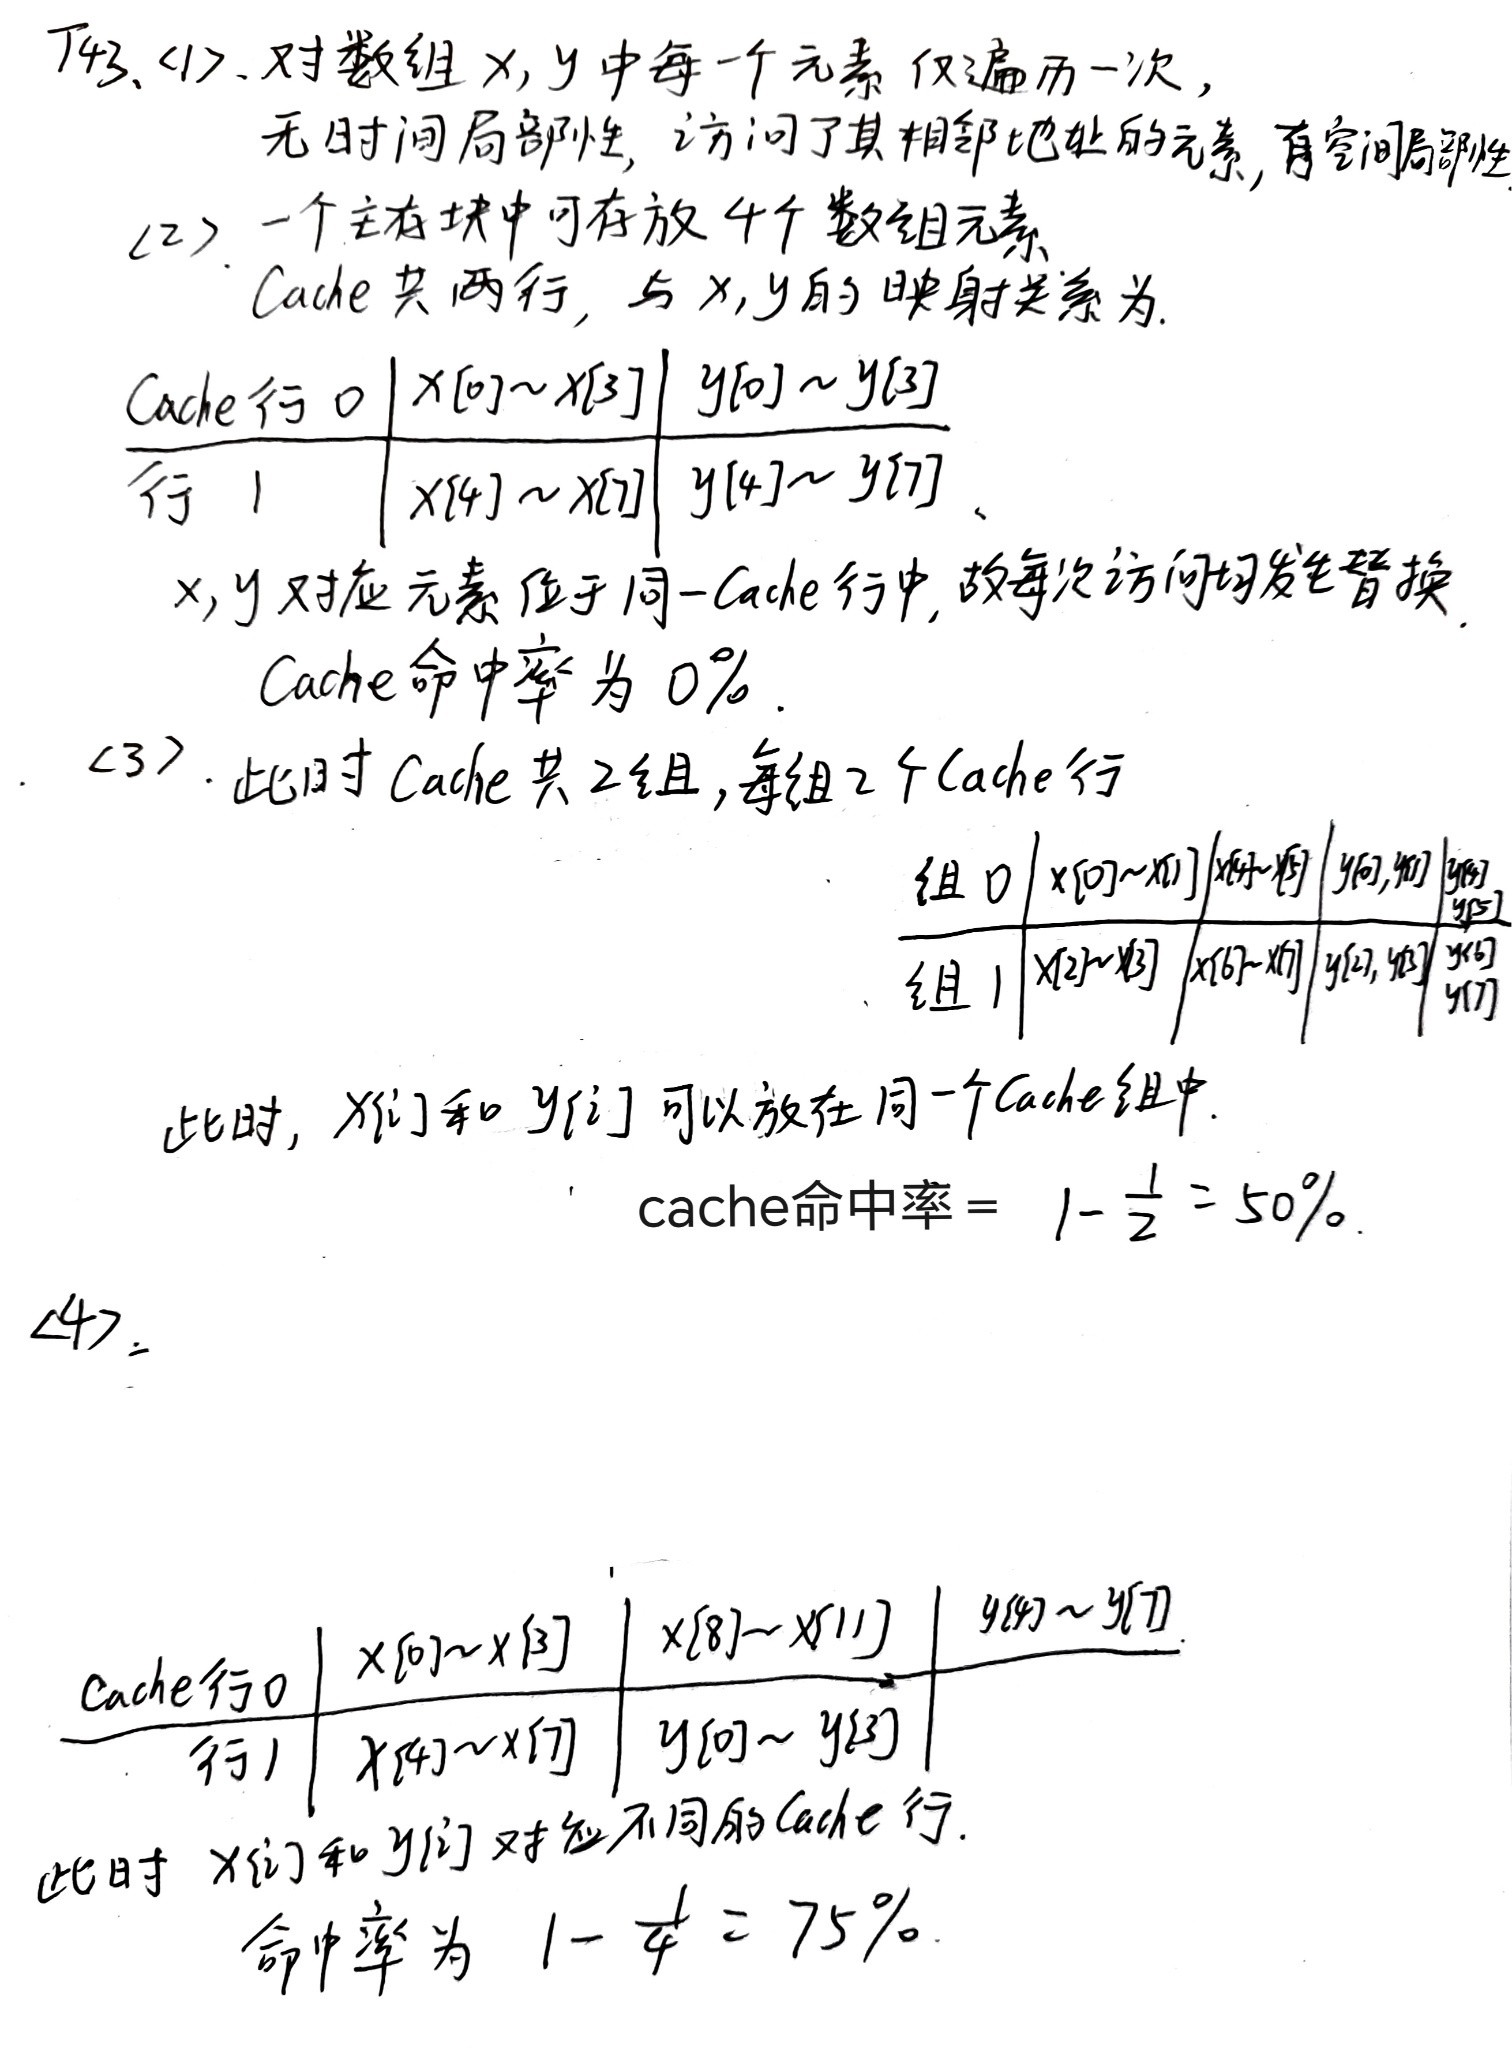 T43、<1>、对数组 x, y 中每一个元素仅遍历一次，
无时间局部性, 访问了其相邻地址的元素, 有空间局部性.
<2>. 一个主存块中可存放 4个 数组元素
Cache 共两行, 与 x, y的映射关系为.
Cache行 0 | x[0]~x[3] | y[0]~y[3]
行 1 | x[4]~x[7] | y[4]~y[7] 、
x, y 对应元素位于同一Cache行中, 故每次访问均发生替换.
Cache命中率为 0%.
<3>. 此时 Cache共2组, 每组2个Cache行
组 0 | x[0]~x[1] | x[4]~x[5] | y[0], y[1] | y[4] y[5]
组 1 | x[2]~x[3] | x[6]~x[7] | y[2], y[3] | y[6] y[7]
此时, x[i]和 y[i] 可以放在同一个Cache组中.
cache命中率 = 1 - 1/2 = 50%.
<4>.
Cache行0 | x[0]~x[3] | x[8]~x[11] | y[4]~y[7].
行1 | x[4]~x[7] | y[0]~y[3] |
此时 x[i]和 y[i] 对应不同的Cache行.
命中率为 1 - 1/4 = 75%.